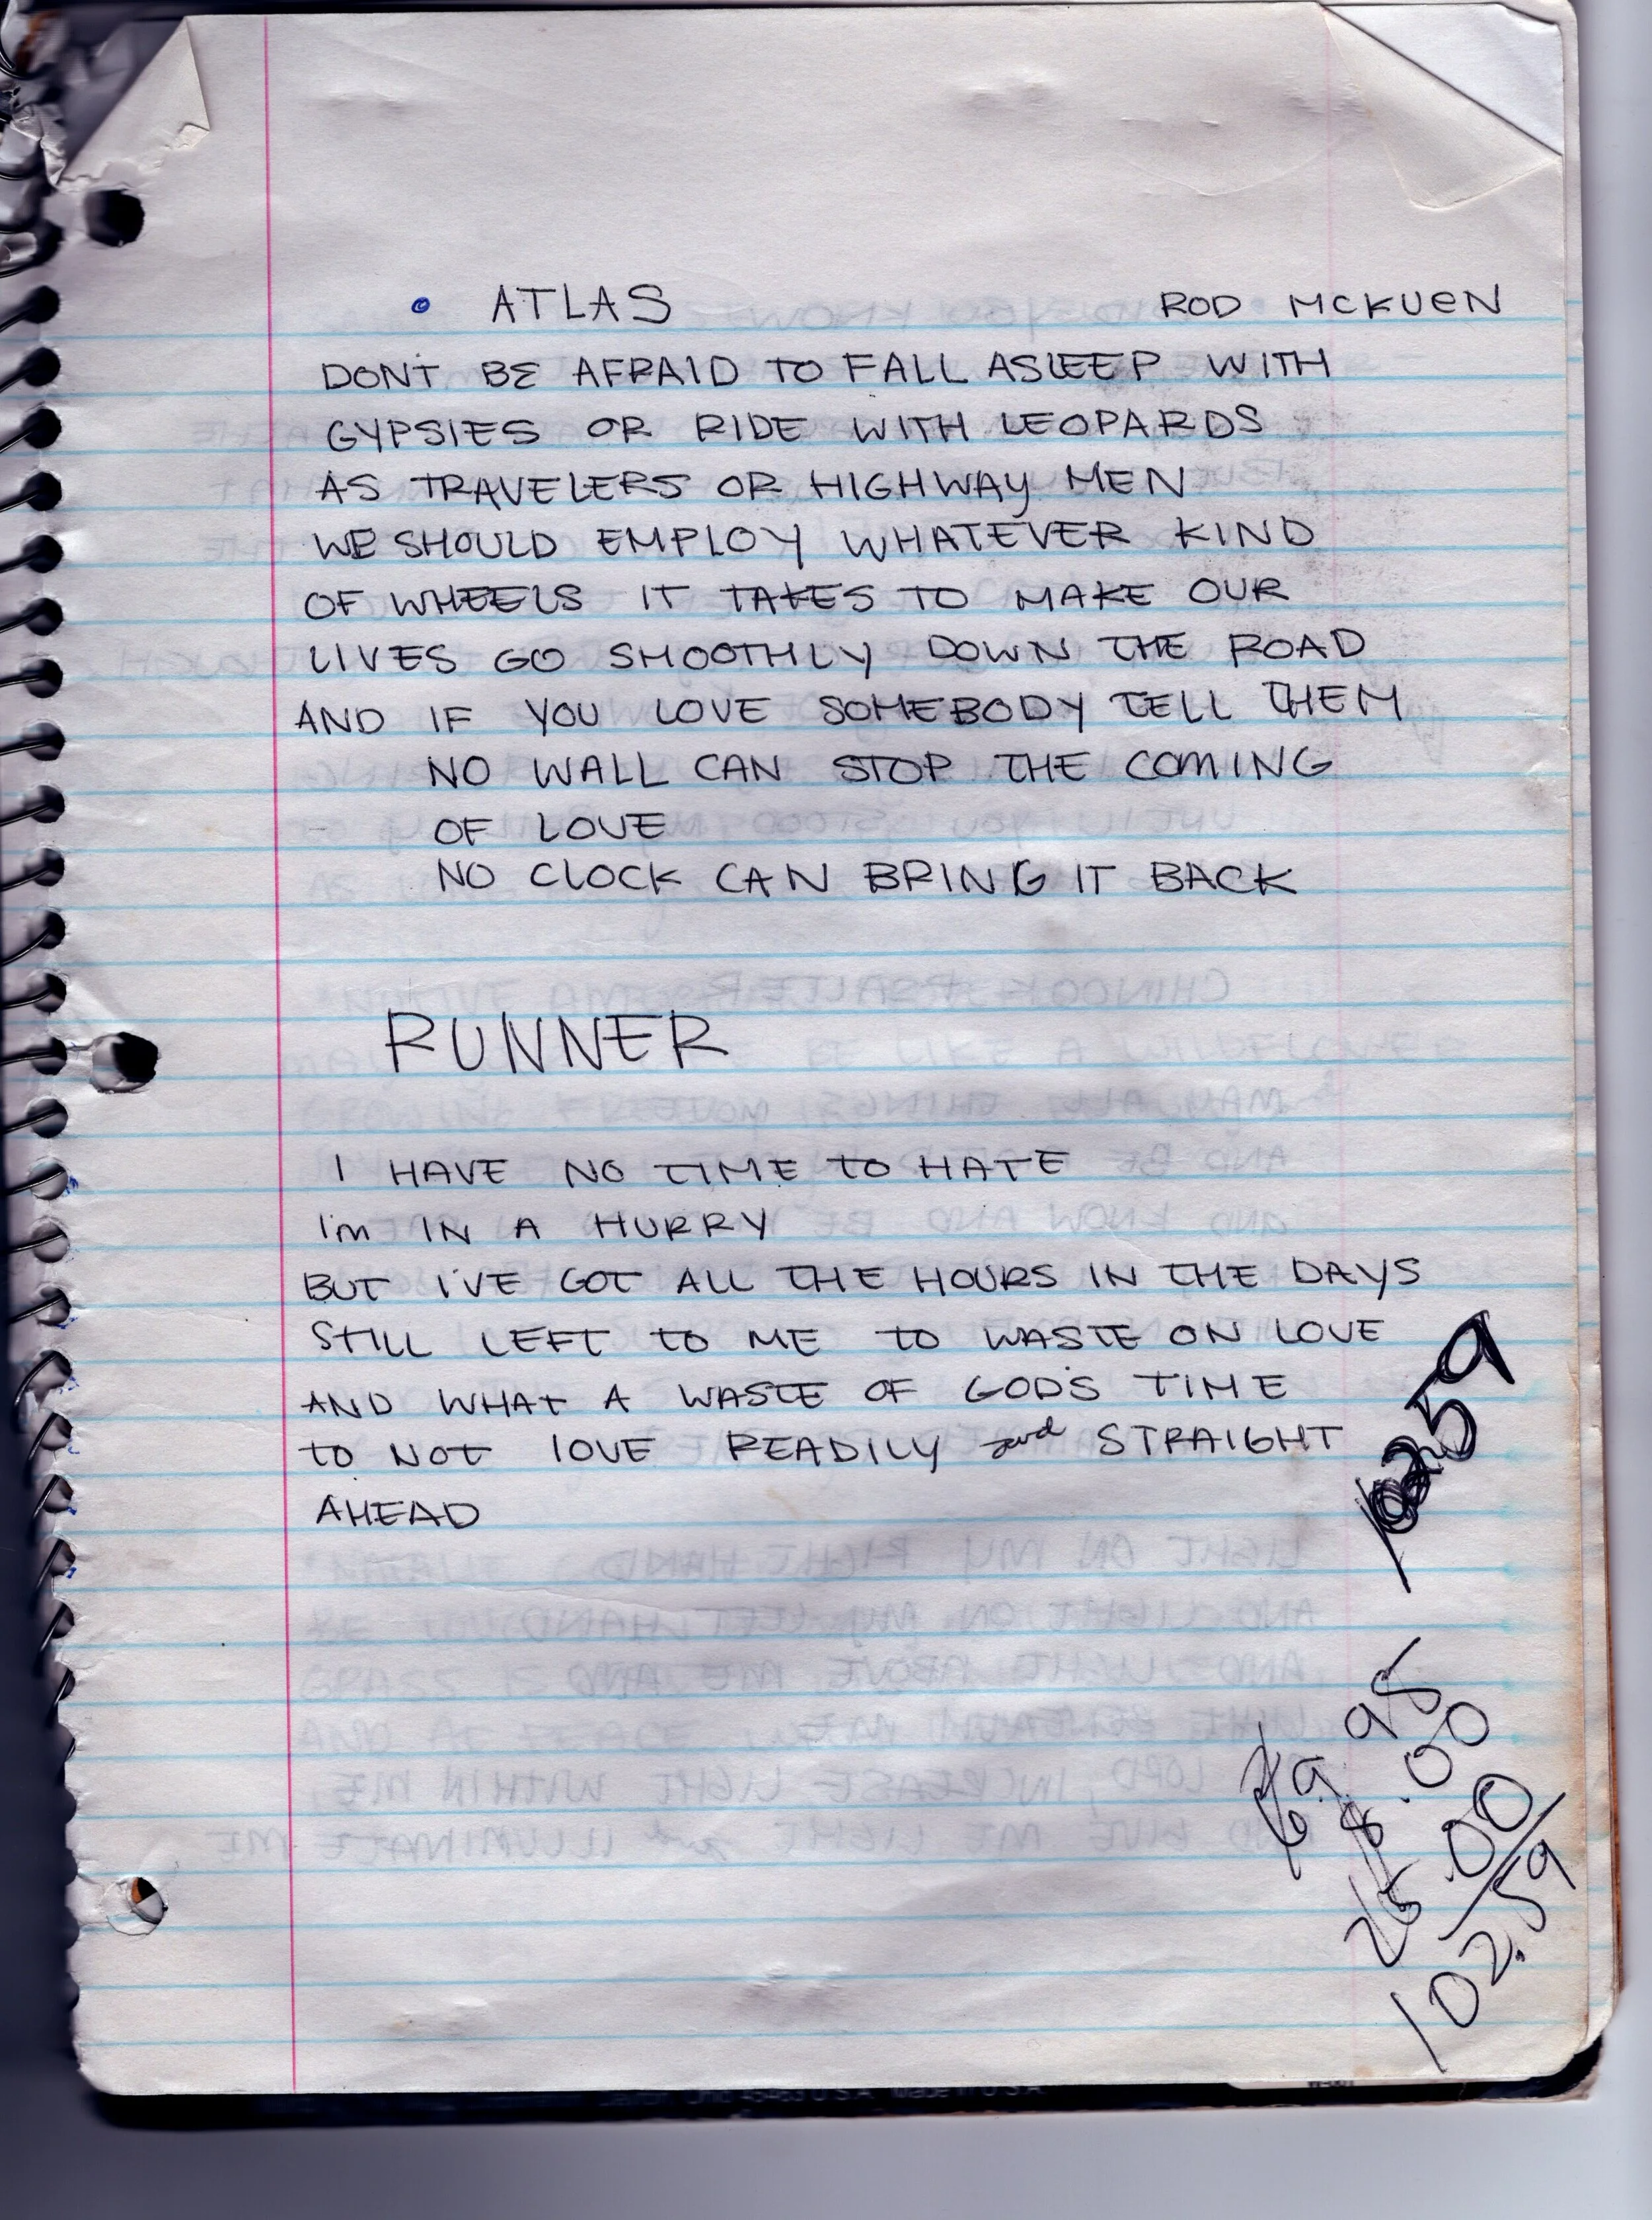 ATLAS ROD MCKUEN
DONT BE AFRAID TO FALL ASLEEP WITH
GYPSIES OR RIDE WITH LEOPARDS
AS TRAVELERS OR HIGHWAY MEN
WE SHOULD EMPLOY WHATEVER KIND
OF WHEELS IT TAKES TO MAKE OUR
LIVES GO SMOOTHLY DOWN THE ROAD
AND IF YOU LOVE SOMEBODY TELL THEM
NO WALL CAN STOP THE COMING
OF LOVE
NO CLOCK CAN BRING IT BACK
RUNNER
I HAVE NO TIME TO HATE
I'm IN A HURRY
BUT I'VE GOT ALL THE HOURS IN THE DAYS
STILL LEFT TO ME TO WASTE ON LOVE
AND WHAT A WASTE OF GOD'S TIME
TO NOT LOVE READILY and STRAIGHT
AHEAD
10259
69.95
8.00
25.00
102.59